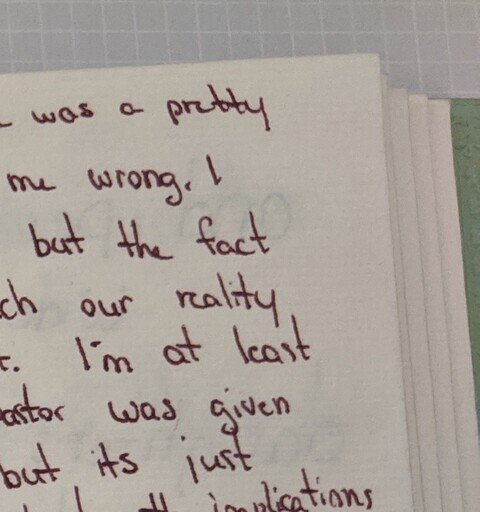 was a pretty
me wrong. I
but the fact
ch our reality
t. I'm at least
astor was given
but its just
implications